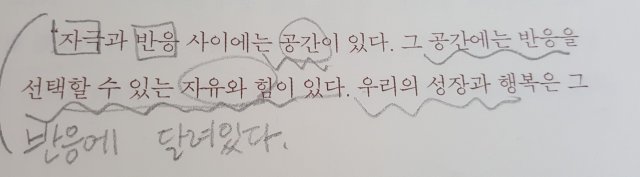 자극과 반응 사이에는 공간이 있다. 그 공간에는 반응을
선택할 수 있는 자유와 힘이 있다. 우리의 성장과 행복은 그
반응에 달려있다.